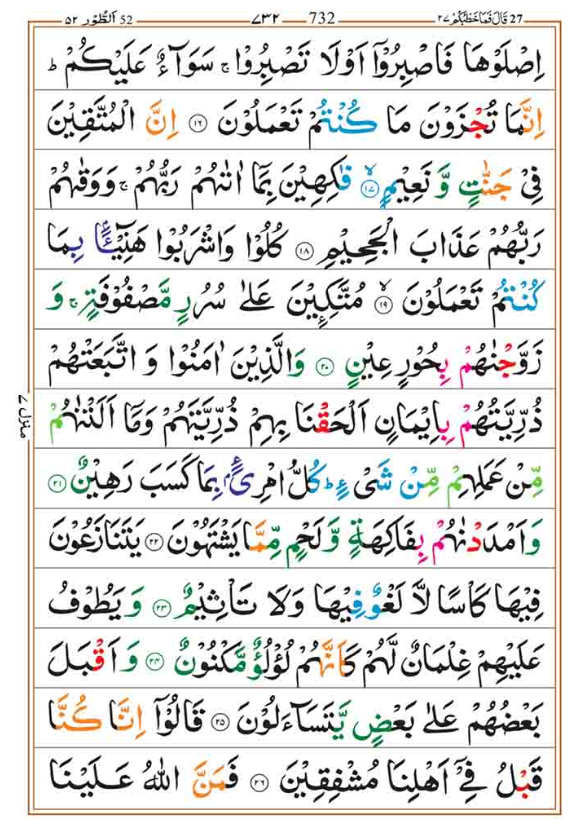 27 قَالَ فَمَا خَطْبُكُمْ ٢٧ 732 ٧٣٢ 52 اَلطُّوْر ٥٢
اِصْلَوْهَا فَاصْبِرُوْۤا اَوْ لَا تَصْبِرُوْا ۚ سَوَآءٌ عَلَيْكُمْ ؕ
اِنَّمَا تُجْزَوْنَ مَا كُنْتُمْ تَعْمَلُوْنَ ﴿۱۶﴾ اِنَّ الْمُتَّقِيْنَ
فِيْ جَنّٰتٍ وَّ نَعِيْمٍ ﴿ۙ۱۷﴾ فٰكِهِيْنَ بِمَاۤ اٰتٰىهُمْ رَبُّهُمْ ۚ وَوَقٰىهُمْ
رَبُّهُمْ عَذَابَ الْجَحِيْمِ ﴿۱۸﴾ كُلُوْا وَاشْرَبُوْا هَنِيْٓـًٔۢا بِمَا
كُنْتُمْ تَعْمَلُوْنَ ﴿ۙ۱۹﴾ مُتَّكِـِٕيْنَ عَلٰى سُرُرٍ مَّصْفُوْفَةٍ ۚ وَ
زَوَّجْنٰهُمْ بِحُوْرٍ عِيْنٍ ﴿۲۰﴾ وَالَّذِيْنَ اٰمَنُوْا وَ اتَّبَعَتْهُمْ
ذُرِّيَّتُهُمْ بِاِيْمَانٍ اَلْحَقْنَا بِهِمْ ذُرِّيَّتَهُمْ وَمَاۤ اَلَتْنٰهُمْ
مِّنْ عَمَلِهِمْ مِّنْ شَيْءٍ ؕ كُلُّ امْرِئٍۢ بِمَا كَسَبَ رَهِيْنٌ ﴿۲۱﴾
وَ اَمْدَدْنٰهُمْ بِفَاكِهَةٍ وَّ لَحْمٍ مِّمَّا يَشْتَهُوْنَ ﴿۲۲﴾ يَتَنَازَعُوْنَ
فِيْهَا كَاْسًا لَّا لَغْوٌ فِيْهَا وَلَا تَاْثِيْمٌ ﴿۲۳﴾ وَ يَطُوْفُ
عَلَيْهِمْ غِلْمَانٌ لَّهُمْ كَاَنَّهُمْ لُؤْلُؤٌ مَّكْنُوْنٌ ﴿۲۴﴾ وَ اَقْبَلَ
بَعْضُهُمْ عَلٰى بَعْضٍ يَّتَسَآءَلُوْنَ ﴿۲۵﴾ قَالُوْۤا اِنَّا كُنَّا
قَبْلُ فِيْۤ اَهْلِنَا مُشْفِقِيْنَ ﴿۲۶﴾ فَمَنَّ اللّٰهُ عَلَيْنَا
منزل ٧